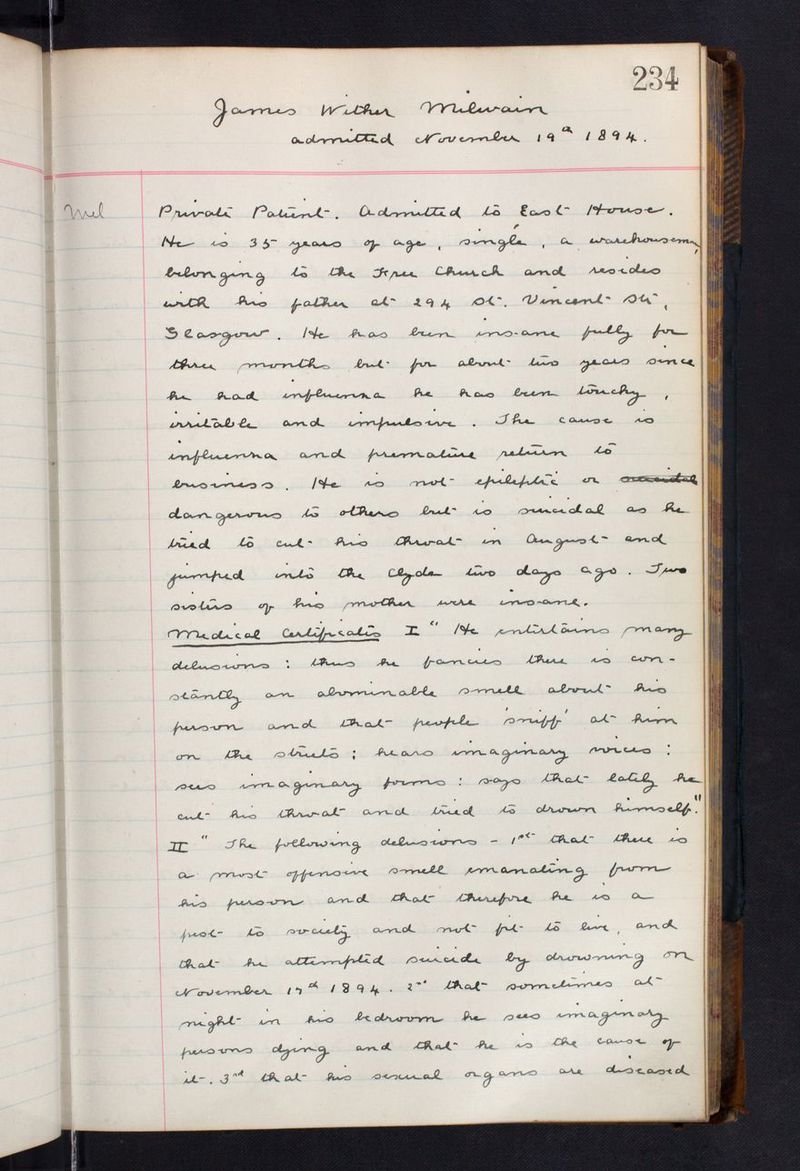 234
James Wither Milwain
admitted November 19th 1894.
Mel
Private Patient. Admitted to East House.
He is 35 years of age, single, a warehouseman,
belonging to the Free Church and resides
with his father at 294 St. Vincent St.,
Glasgow. He has been insane fully for
three months but for about two years since
he had influenza he has been touchy,
irritable and impulsive. The cause is
influenza and premature return to
business. He is not epileptic or suicidal
dangerous to others but is suicidal as he
tried to cut his throat in August and
jumped into the Clyde two days ago. Two
sisters of his mother were insane.
Medical Certificates I "He entertains many
delusions: thus he fancies there is con-
stantly an abominable smell about his
person and that people 'sniff' at him
on the streets; hears imaginary voices:
sees imaginary forms: says that lately he
cut his throat and tried to drown himself."
II "The following delusions - 1st that there is
a most offensive smell emanating from
his person and that therefore he is a
pest to society and not fit to live, and
that he attempted suicide by drowning on
November 17th 1894. 2nd that sometimes at
night in his bedroom he sees imaginary
persons dying and that he is the cause of
it. 3rd that his sexual organs are diseased